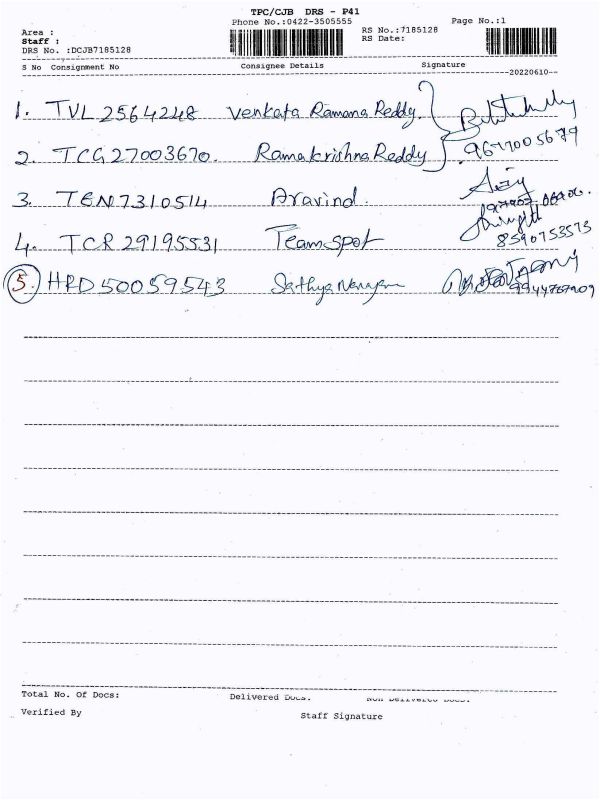 TPC/CJB DRS - P41
Phone No.:0422-3505555
Page No.:1
Area :
Staff :
DRS No. :DCJB7185128
RS No.:7185128
RS Date:
S No Consignment No Consignee Details Signature
--20220610--
1. TVL 2564248 Venkata Ramana Reddy.
2. TCG 27003670. Ramakrishna Reddy
3. TEN 7310514 Aravind.
4. TCR 29195531 Teamspot
8590753573
5. HPD50059543 Sathya Narayan
9944767909
Total No. Of Docs: Delivered Docs. Non Delivered Docs.
Verified By Staff Signature